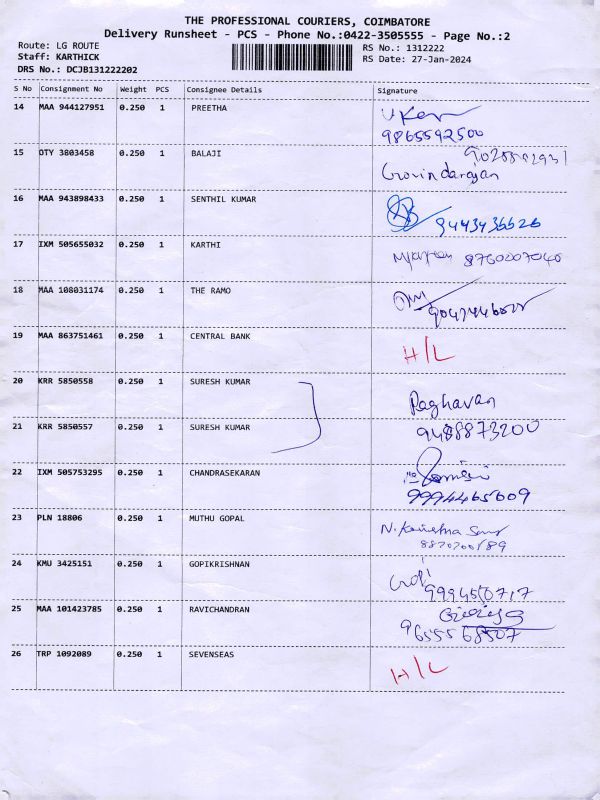 THE PROFESSIONAL COURIERS, COIMBATORE
Delivery Runsheet - PCS - Phone No.:0422-3505555 - Page No.:2
Route: LG ROUTE RS No.: 1312222
Staff: KARTHICK RS Date: 27-Jan-2024
DRS No.: DCJB131222202
S No Consignment No Weight PCS Consignee Details Signature
14 MAA 944127951 0.250 1 PREETHA
9865592500
15 OTY 3803458 0.250 1 BALAJI
Govindarajan
16 MAA 943898433 0.250 1 SENTHIL KUMAR
9443436626
17 IXM 505655032 0.250 1 KARTHI
8760207040
18 MAA 108031174 0.250 1 THE RAMO
19 MAA 863751461 0.250 1 CENTRAL BANK H/L
20 KRR 5850558 0.250 1 SURESH KUMAR Raghavan
21 KRR 5850557 0.250 1 SURESH KUMAR 9488873200
22 IXM 505753295 0.250 1 CHANDRASEKARAN
9994465609
23 PLN 18806 0.250 1 MUTHU GOPAL
24 KMU 3425151 0.250 1 GOPIKRISHNAN
9994510717
25 MAA 101423785 0.250 1 RAVICHANDRAN
9655568507
26 TRP 1092089 0.250 1 SEVENSEAS H/L